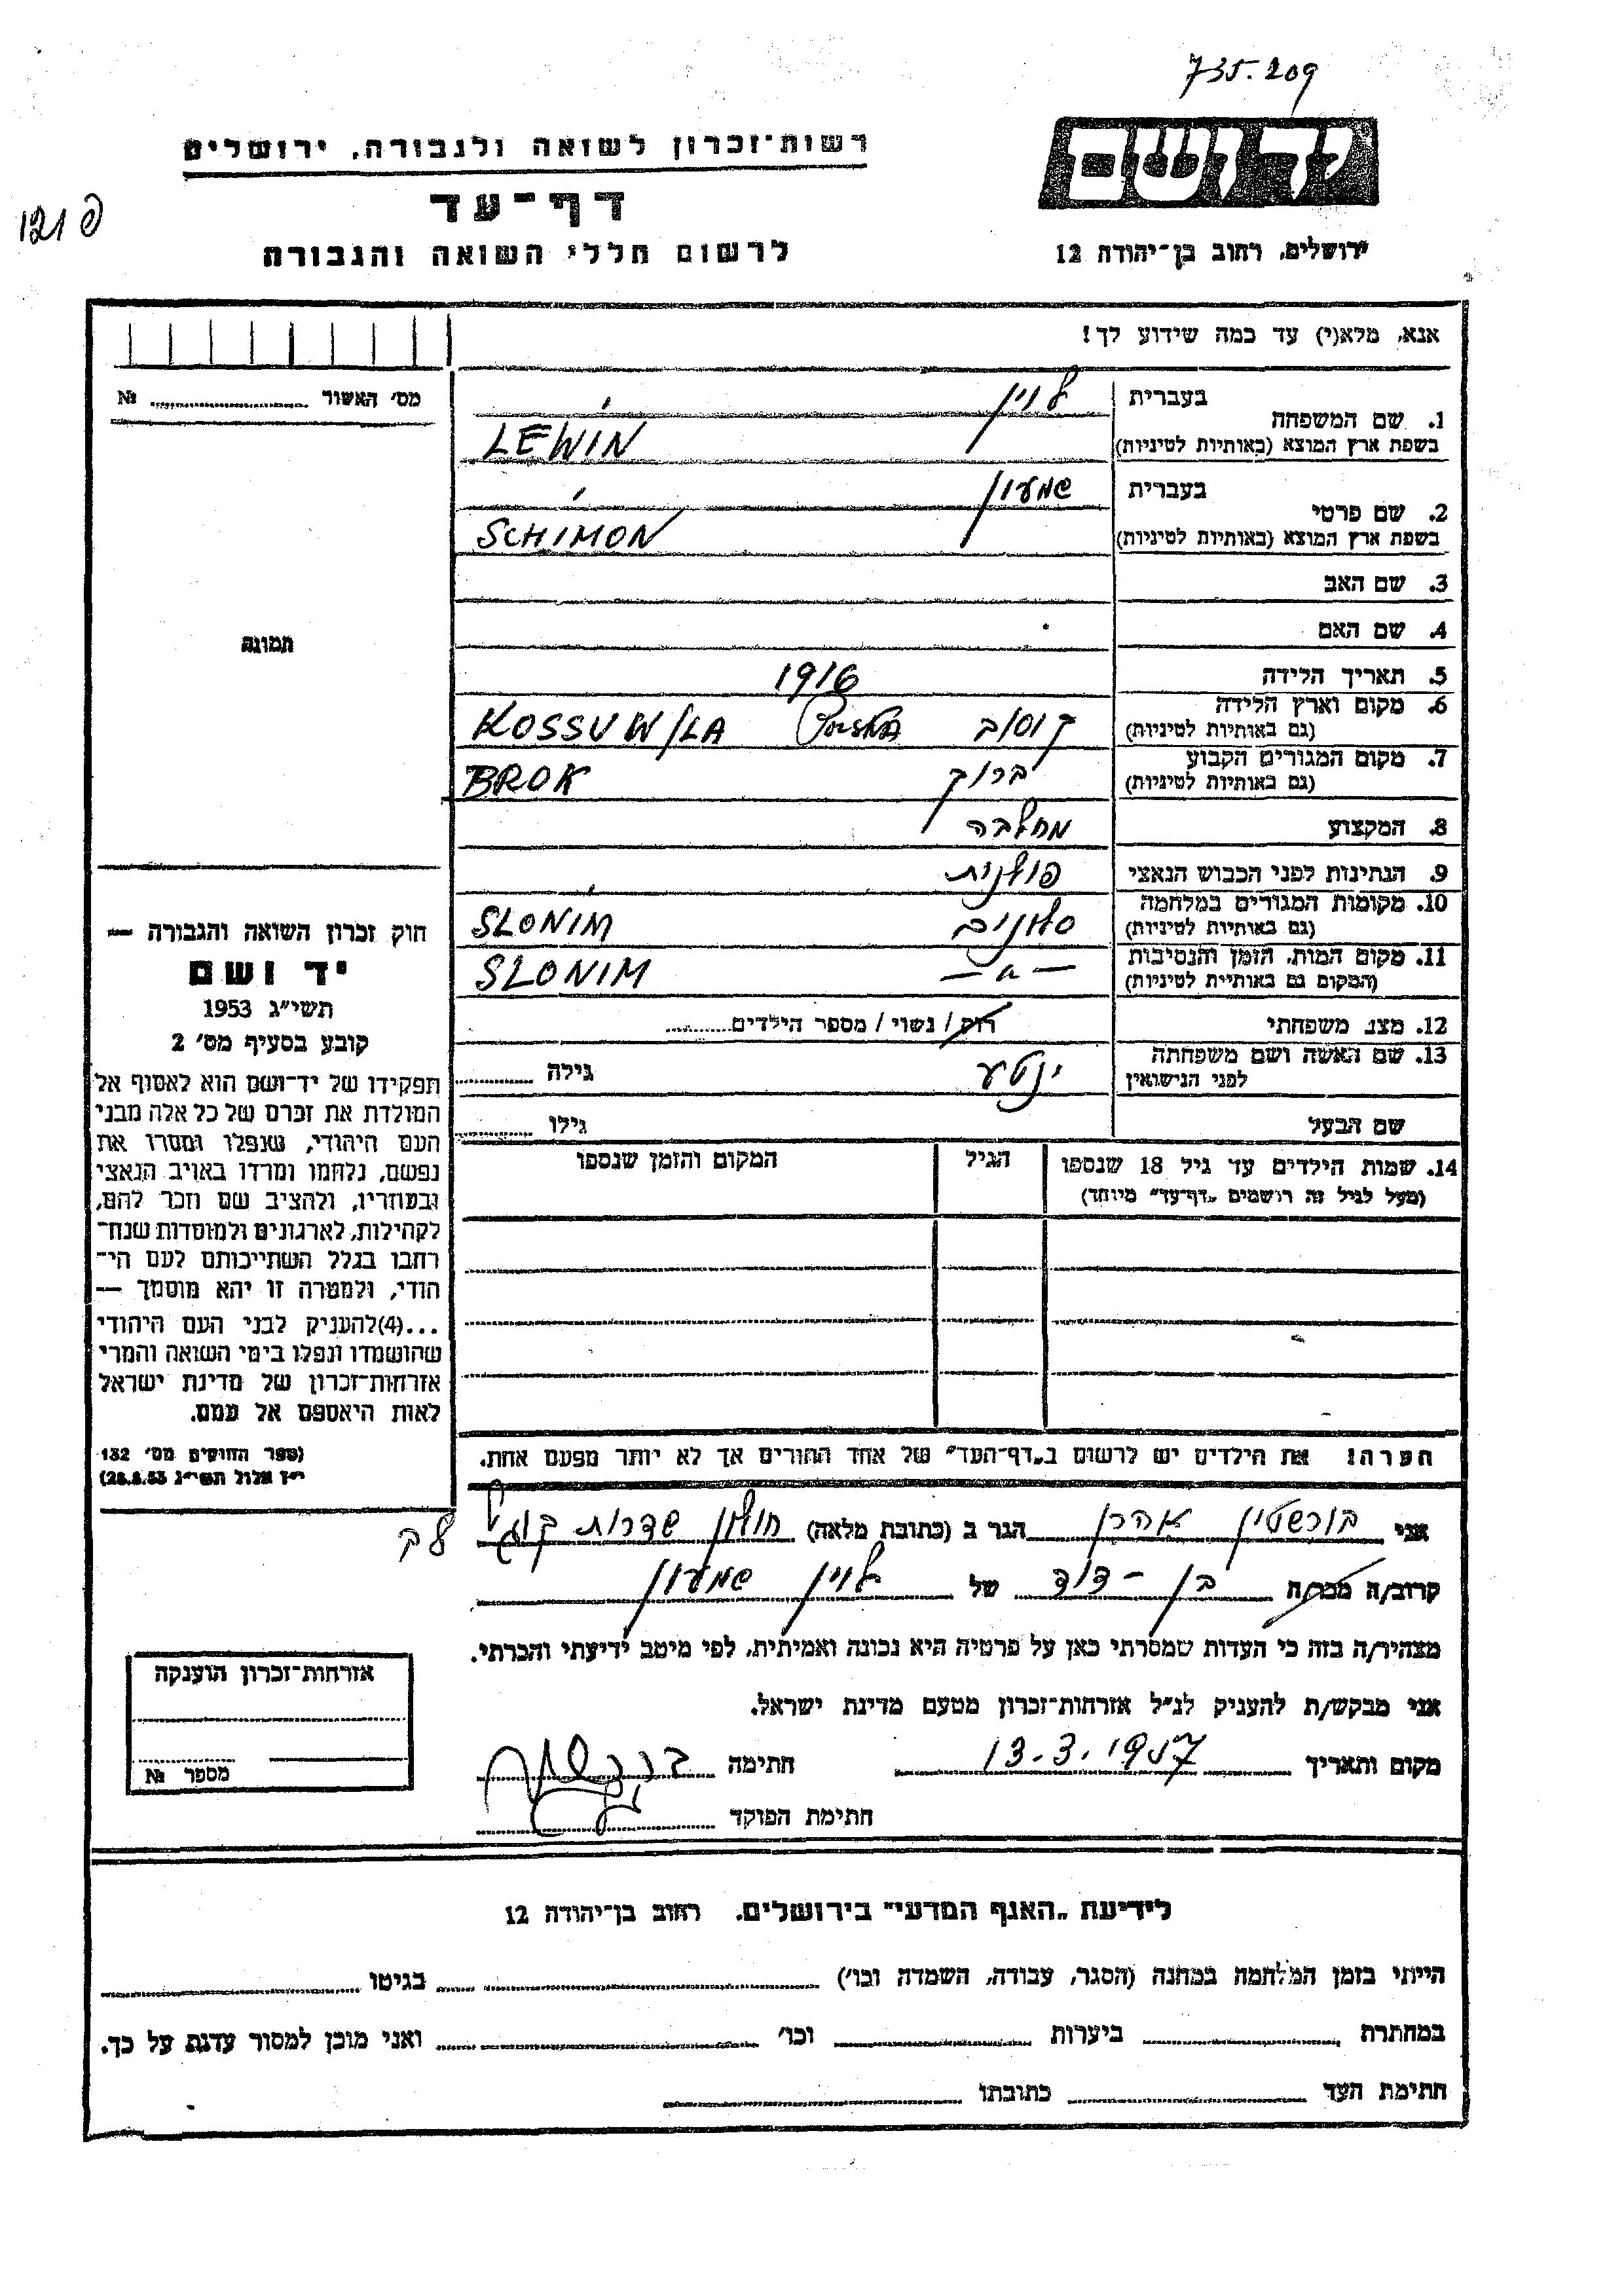 735.209
ידושם
רשות־זכרון לשואה ולגבורה, ירושלים
דף־עד
לרשום חללי השואה והגבורה
ירושלים, רחוב בן־יהודה 12
אנא, מלא(י) עד כמה שידוע לך!
מס' האשור № ....................
1. שם המשפחה בעברית לוין
בשפת ארץ המוצא (באותיות לטיניות) LEWIN
2. שם פרטי בעברית שמעון
בשפת ארץ המוצא (באותיות לטיניות) SCHIMON
3. שם האב
4. שם האם
תמונה
5. תאריך הלידה 1916
6. מקום וארץ הלידה (גם באותיות לטיניות) קוסוב Polska KOSSUW/LA
7. מקום המגורים הקבוע (גם באותיות לטיניות) ברוק BROK
8. המקצוע
9. הנתינות לפני הכבוש הנאצי פולנית
10. מקומות המגורים במלחמה (גם באותיות לטיניות) סלונים SLONIM
11. מקום המות, הזמן והנסיבות (המקום גם באותיית לטיניות) — " — SLONIM
12. מצב משפחתי רוק / נשוי / מספר הילדים.........
13. שם האשה ושם משפחתה לפני הנישואין ינטע גילה ..........
שם הבעל גילו ..........
14. שמות הילדים עד גיל 18 שנספו (מעל לגיל זה רושמים „דף־עד” מיוחד) הגיל המקום והזמן שנספו
חוק זכרון השואה והגבורה —
יד ושם
תשי״ג 1953
קובע בסעיף מס' 2
תפקידו של יד־ושם הוא לאסוף אל
המולדת את זכרם של כל אלה מבני
העם היהודי, שנפלו ומסרו את
נפשם, נלחמו ומרדו באויב הנאצי
ובעוזריו, ולהציב שם וזכר להם,
לקהילות, לארגונים ולמוסדות שנח־
רחבו בגלל השתייכותם לעם הי־
הודי, ולמטרה זו יהא מוסמך —
...(4)להעניק לבני העם היהודי
שהושמדו ונפלו בימי השואה והמרי
אזרחות־זכרון של מדינת ישראל
לאות היאספם אל עמם.
(ספר החוקים מס' 132
י״ז אלול תשי״ג 28.8.53)
הערה: את הילדים יש לרשום ב„דף־העד” של אחד ההורים אך לא יותר מפעם אחת.
אני בורשטין אהרן הגר ב (כתובת מלאה) חולון שדרות
קרוב/ה מכר/ה בן - דוד של לוין שמעון
מצהיר/ה בזה כי העדות שמסרתי כאן על פרטיה היא נכונה ואמיתית, לפי מיטב ידיעתי והכרתי.
אני מבקש/ת להעניק לנ״ל אזרחות־זכרון מטעם מדינת ישראל.
מקום ותאריך 13.3.1957 חתימה
חתימת הפוקד
אזרחות־זכרון הוענקה
מספר №
לידיעת „האגף המדעי” בירושלים, רחוב בן־יהודה 12
הייתי בזמן המלחמה במחנה (הסגר, עבודה, השמדה וכו') בגיטו
במחתרת ביערות וכו' ואני מוכן למסור עדות על כך.
חתימת העד כתובתו